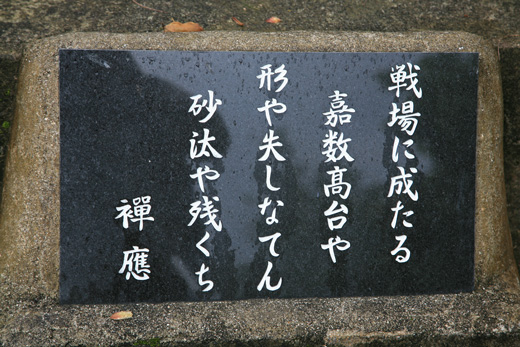 戦場に成たる
嘉数高台や
形や失しなてん
砂汰や残くち
禪應